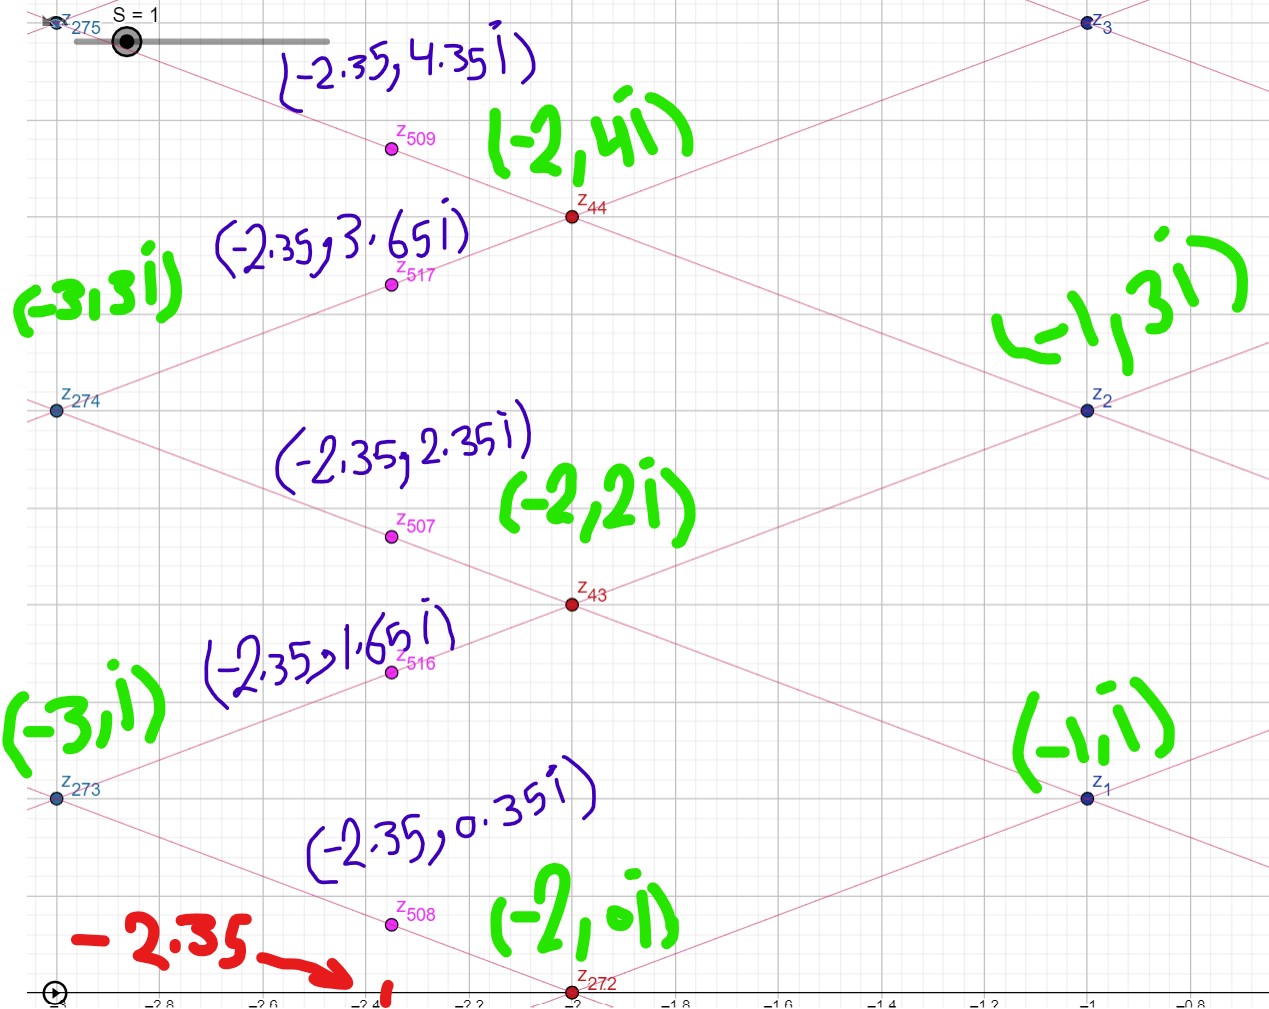 z275 S = 1 z3
(-2.35, 4.35i)
z509
(-2, 4i)
z44
(-2.35, 3.65i)
z517
(-3, 3i)
(-1, 3i)
z274
z2
(-2.35, 2.35i)
(-2, 2i)
z507
z43
(-2.35, 1.65i)
z516
(-3, i)
(-1, i)
z273
z1
(-2.35, 0.35i)
(-2, 0i)
z508
-2.35
z272
-3 -2.8 -2.6 -2.4 -2.2 -2 -1.8 -1.6 -1.4 -1.2 -1 -0.8